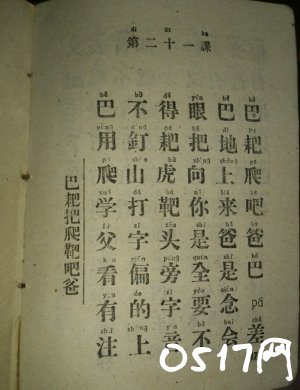 第二十一課
巴不得眼巴巴
用釘耙把地耙
爬山虎向上爬
学打靶你来吧
父字头是爸爸
看偏旁全是巴
有的字要念pá
注上音不会差
巴耙把爬靶吧爸
OS17网